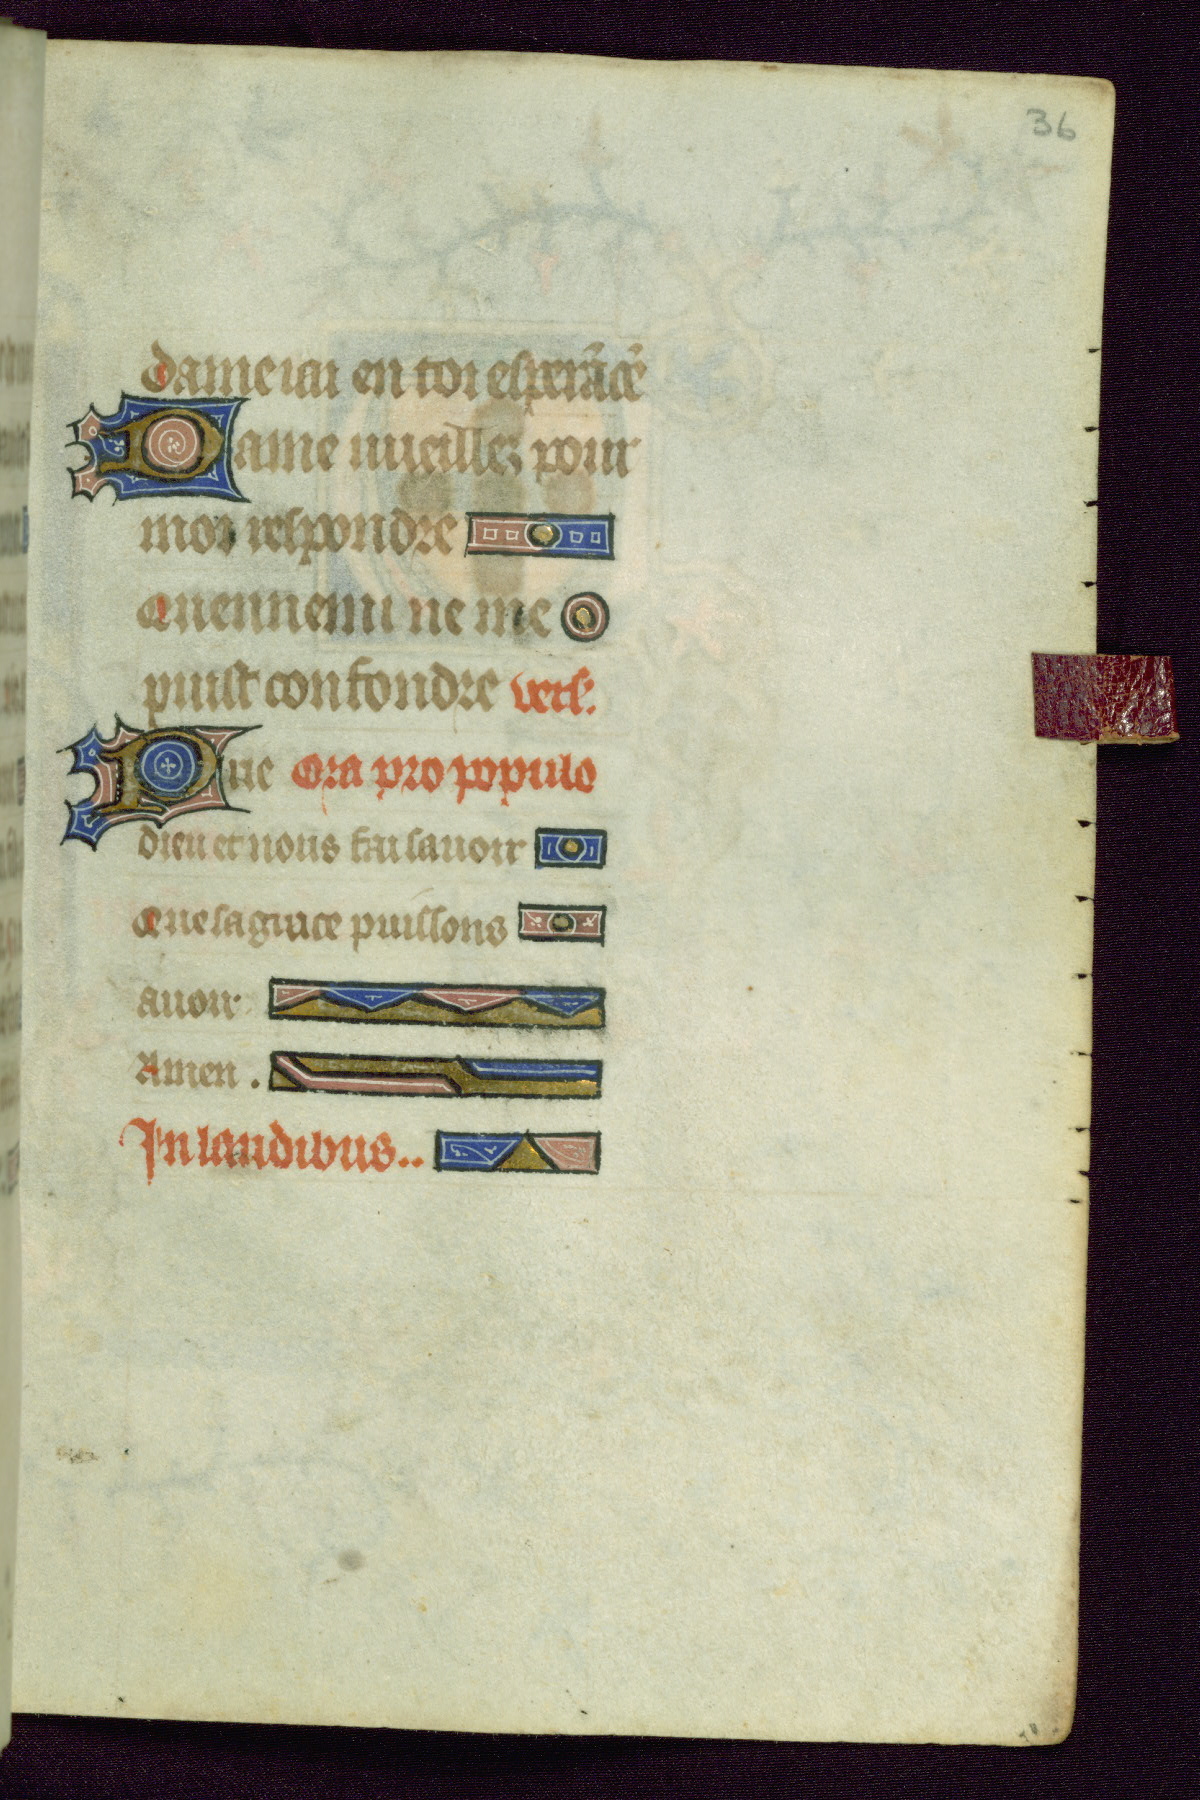 36
dame iai en toi esperãcẽ
Dame uueillez pour
moi respondre
Quennemi ne me
puist confondre vers.
Prie Ora pro populo
dieu et nous fai sauoir
Que sa grace puissons
auoir
Amen.
In laudibus..